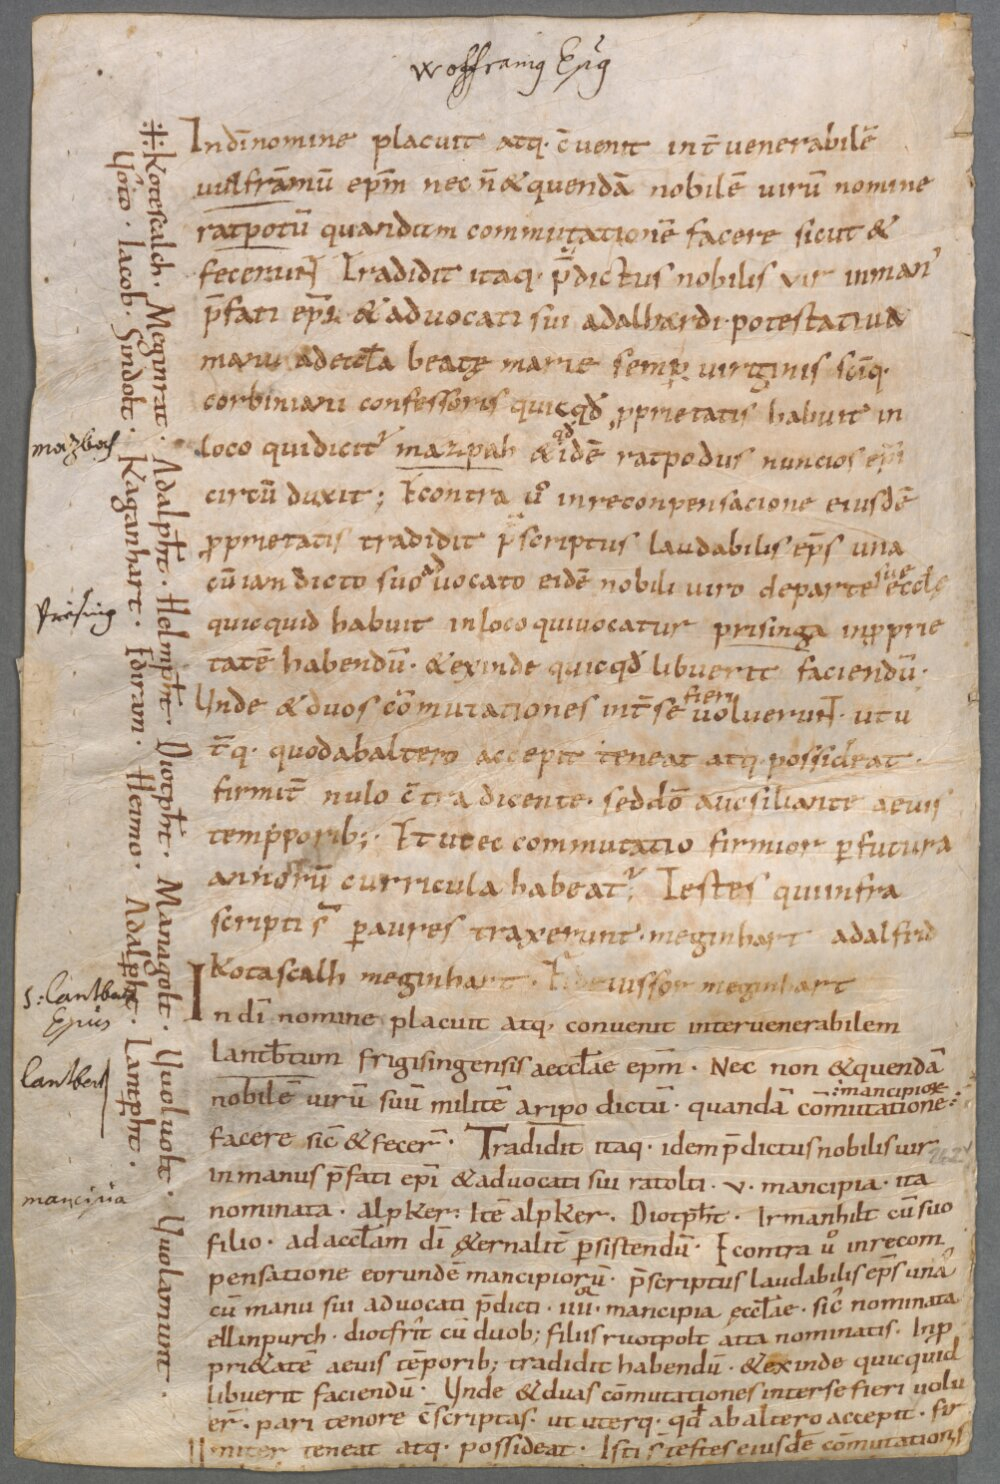 wolfframg Epīg
In dī nomine placuit atq· c̄venit int̄ venerabilē
uulframū ep̄m nec n̄ & quendā nobilē uirū nomine
ratpotū quandam commutationē facere sicut &
fecerunt Tradidit itaq· p̄dictus nobilis vir in man᾽
p̄fati ep̄i & advocati sui adalhardi· potestativa
manu ad eccl̄a beatę marie semp̄ virginis scīq·
corbiniani confessoris quicqd̄ p̱prietatis habuit in
loco qui dicit᾽ mazpah & qd̄ idē ratpodus nuncios ep̄i
circū duxit; Econtra ů in reconpensacione eiusdē
p̱prietatis tradidit p̄scriptus laudabilis ep̄s una
cū ian dicto suo advocato eidē nobili viro de parte sue eccle
quicquid habuit in loco qui vocatur prisinga in p̱prie
tatē habendū· & exinde quicqd̄ libuerit faciendū·
Unde & duos cōmutationes int̄ se fieri voluerunt· ut u
t̄q· quod ab altero accepit teneat atq· possideat·
firmit̄ nulo c̄tradicente· sed dō aucsiliante aevis
temporib;· Et ut ec commutatio firmior p̱ futura
annorū curricula habeat᾽; Testes qui infra
scripti s̄ p̱ aures traxerunt· meginhart adalfrid
Kotascalh meginhart· Fideiussor meginhart
In dī nomine placuit atq, convenit inter venerabilem
Lantb̄tum frigisingensis aeccl̄ae ep̄m· Nec non & quendā
nobilē uirū suū militē aripo dictū· quandā cōmutationē :mancipiorę
facere sic̄ & fecer̄· Tradidit itaq· idem p̄dictus nobilis uir
in manus p̄fati ep̄i & advocati sui ratolti· v· mancipia· ita
nominata· alpker: Itē alpker. Diotp̄ht· Irmanhilt cū suo
filio· ad accl̄am dī &ernalit̄ p̱sistendū· Econtra ů in recom
pensatione eorundē mancipiorū· p̄scriptus laudabilis ep̄s una
cū manu sui advocati p̄dicti· iiii· mancipia ęccl̄ae· sic̄ nominata
ellinpurch· diotfrīt cū duob; filiis ruotpolt atta nominatis· In p̱
pri&atē aevis tēporib; tradidit habendū· & exinde quicquid
libuerit faciendū· Unde & duas cōmutationes inter se fieri uolu
er̄· pari tenore c̄scriptas· ut uterq· qd̄ ab altero accepit· fir
miter teneat atq· possideat· Isti s̄ testes eiusdē cōmutationis
Kotescalch· Meginrat· Adalp̄ht· Helmp̄ht· Diotp̄ht· Managolt· Uuoluolt· Uuolamunt·
Uoto· Iacob· Sindolt· Kaganhart· Ediram· Heimo· Adalp̄ht· Lantp̄ht·
mazbach
Prising
S: Lantbert
Epūs
Lantbert
mancipia